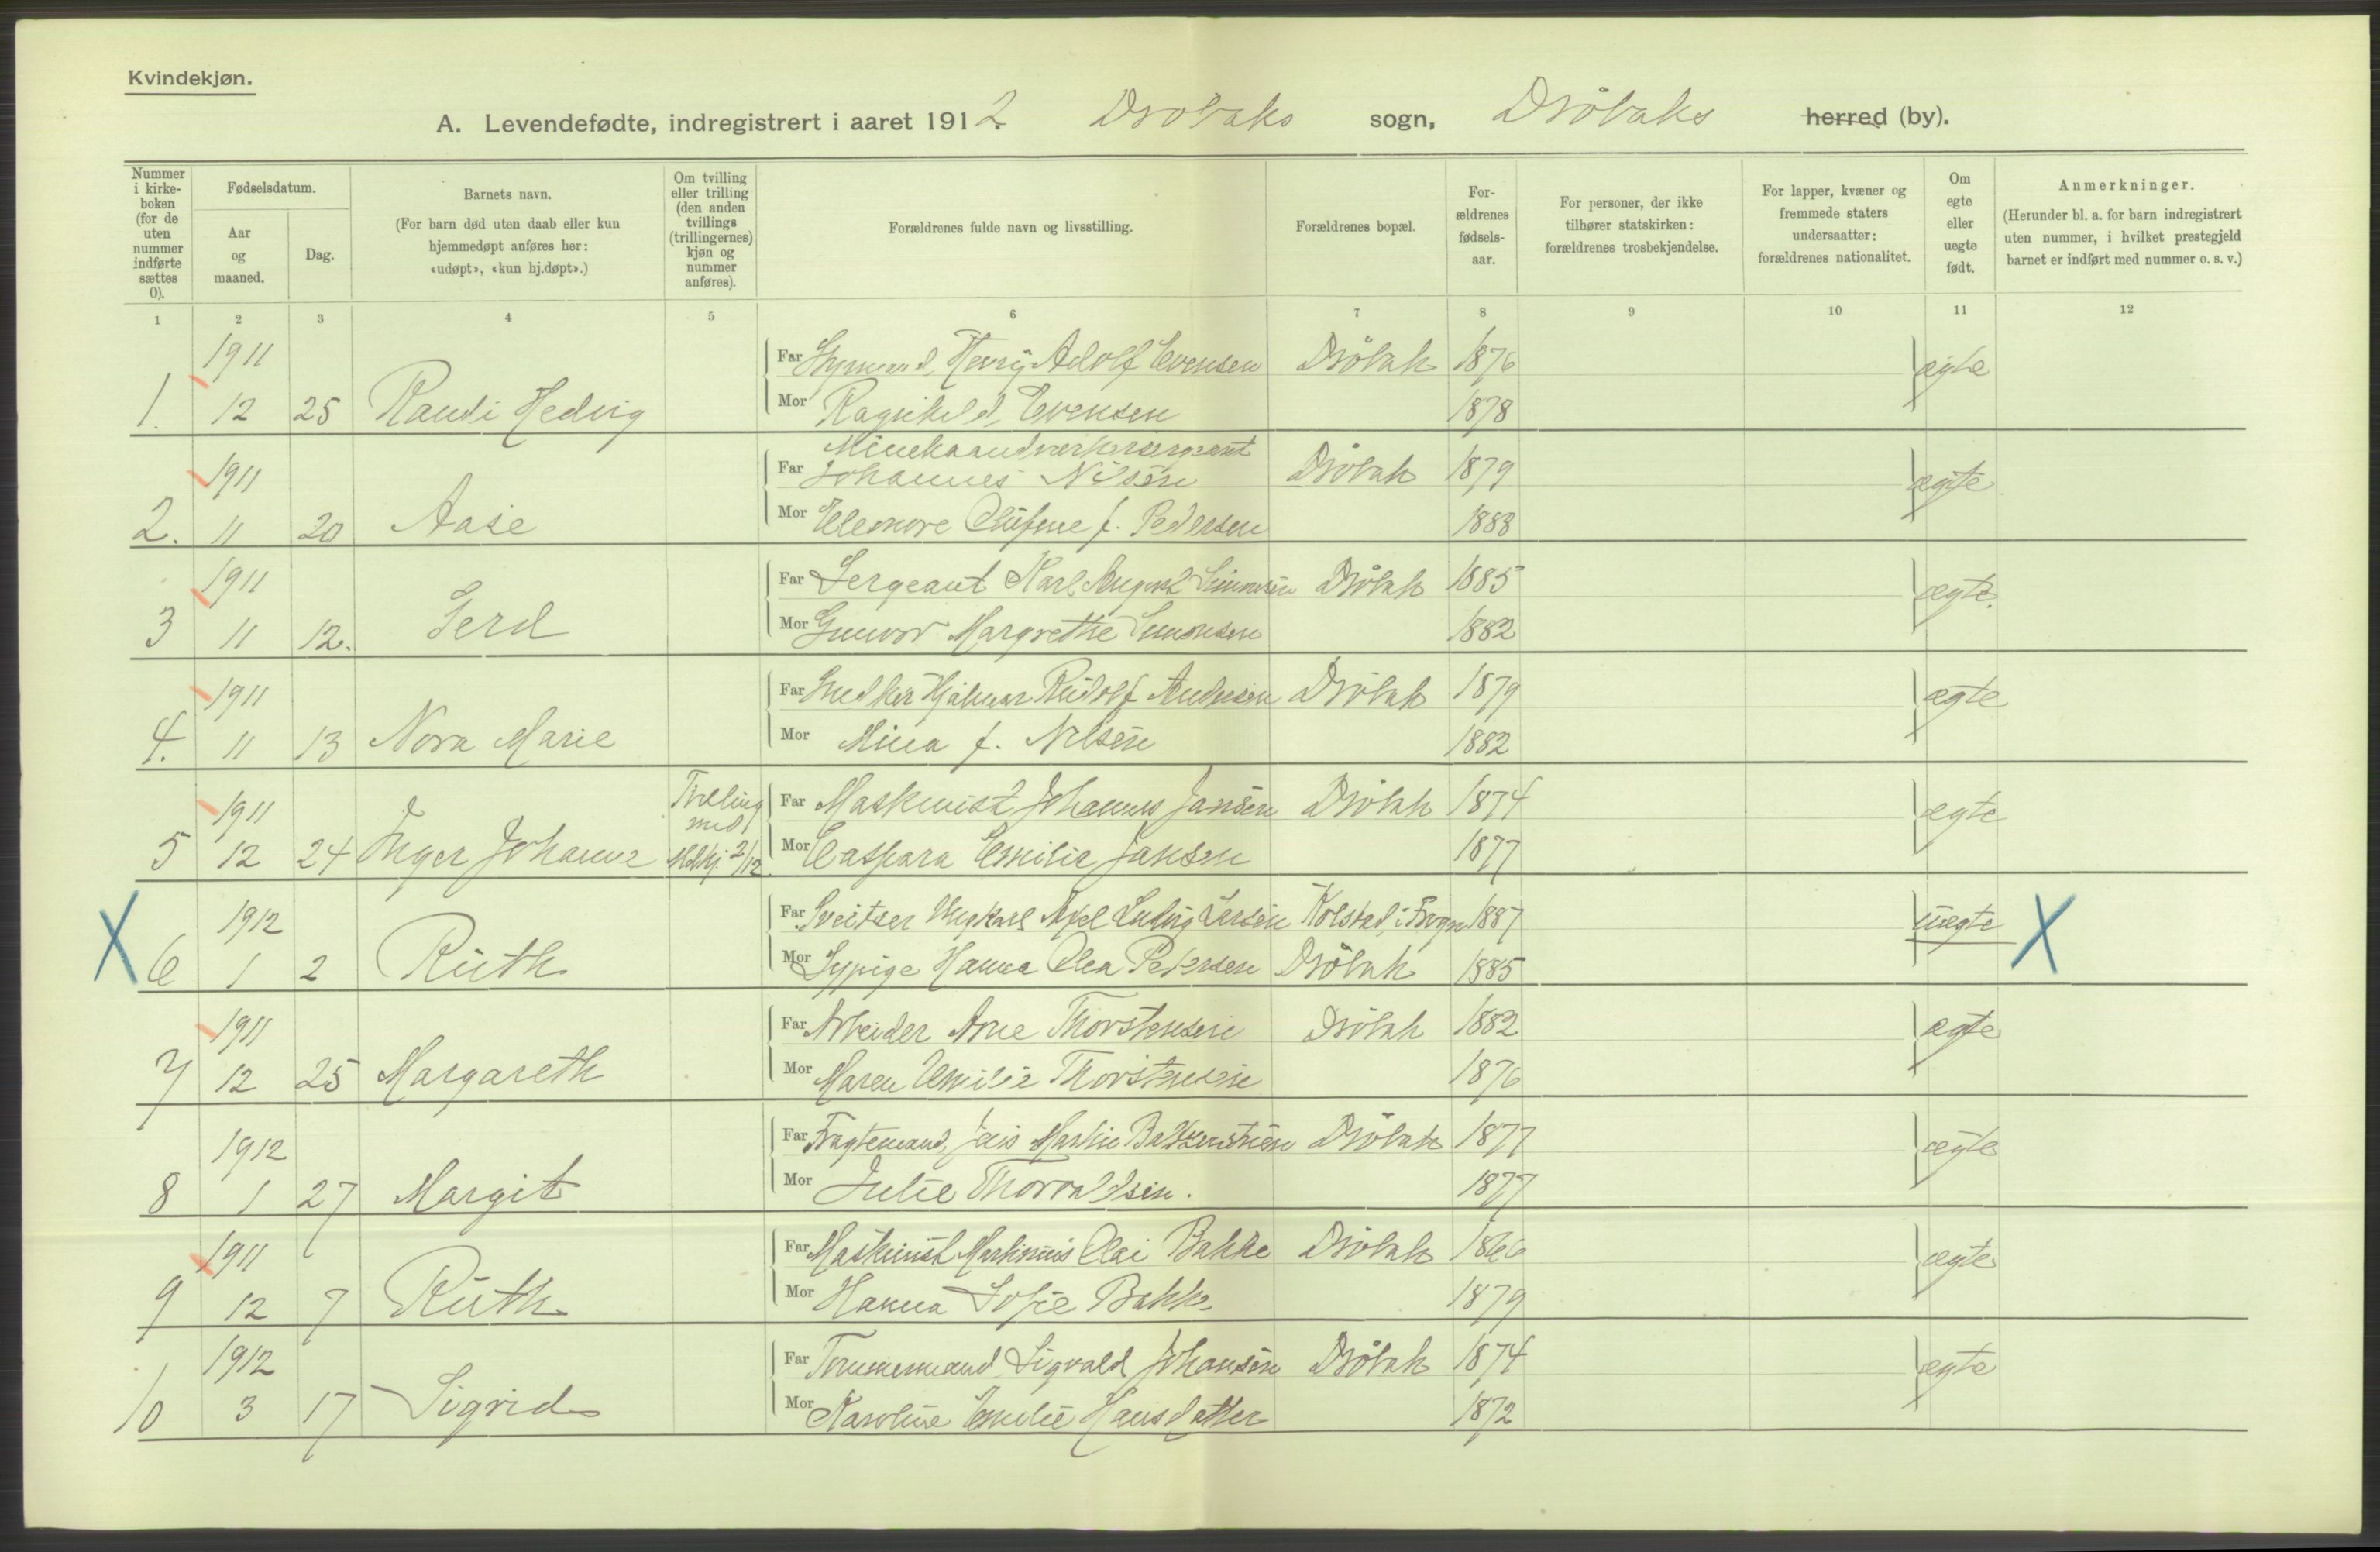 Kvindekjøn.
A. Levendefødte, indregistrert i aaret 1912. Drøbaks sogn, Drøbaks herred (by).
Nummer i kirkeboken (for de uten nummer indførte sættes 0).
Fødselsdatum.
Aar og maaned.
Dag.
Barnets navn.
(For barn død uten daab eller kun hjemmedøpt anføres her: «udøpt», «kun hj.døpt».)
Om tvilling eller trilling (den anden tvillings (trillingernes) kjøn og nummer anføres).
Forældrenes fulde navn og livsstilling.
Forældrenes bopæl.
Forældrenes fødselsaar.
For personer, der ikke tilhører statskirken: forældrenes trosbekjendelse.
For lapper, kvæner og fremmede staters undersaatter: forældrenes nationalitet.
Om egte eller uegte født.
Anmerkninger.
(Herunder bl. a. for barn indregistrert uten nummer, i hvilket prestegjeld barnet er indført med nummer o. s. v.)
1 2 3 4 5 6 7 8 9 10 11 12
1911 Far Henry Adolf Evensen Drøbak 1876 ægte
1. 12 25 Randi Hedvig Mor Ragnhild Evensen 1878
Minehaandverkersergeant
1911 Far Johannes Nilsen Drøbak 1879 ægte
2. 11 20 Aase Mor Eleonore Olufine f. Pedersen 1888
1911 Far Sergeant Karl August Simonsen Drøbak 1885 ægte.
3 11 12. Gerd Mor Gunvor Margrethe Simonsen 1882
1911 Far Snedker Hjalmar Rudolf Andresen Drøbak 1879 ægte
4. 11 13 Nora Marie Mor Mina f. Nilsen 1882
1911 Tvilling med Far Maskinist Johannes Jansen Drøbak 1874 ægte
5 12 24 Inger Johanne 2/12. Mor Caspara Emilie Jansen 1877
X 1912 Far Sveitser Ungkarl Axel Ludvig Larsen Kolstad, i Frogn 1887 uægte X
6 1 2 Ruth Mor Sypige Hanna Olea Pedersen Drøbak 1885
1911 Far Arbeider Arne Thorstensen Drøbak 1882 ægte
7 12 25 Margareth Mor Maren Emilie Thorstensen 1876
1912 Far Fragtemand, Martin Drøbak 1877 ægte
8 1 27 Margit Mor Julie Thorvaldsen. 1877
1911 Far Maskinist Martinius Olai Bakke Drøbak 1866 ægte
9 12 7 Ruth Mor Hanna Sofie Bakke 1879
1912 Far Tømmermand Sigvald Johansen Drøbak 1874 ægte
10 3 17 Sigrid Mor Karoline Emilie Hansdatter 1872